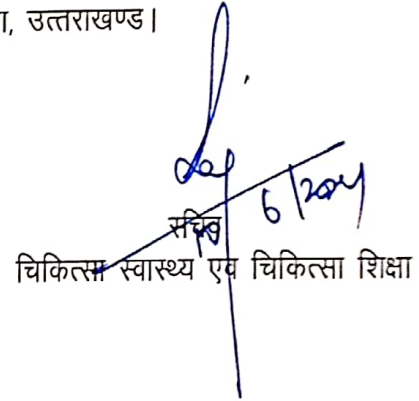 , उत्तराखण्ड।
6/2024
सचिव
चिकित्सा स्वास्थ्य एवं चिकित्सा शिक्षा